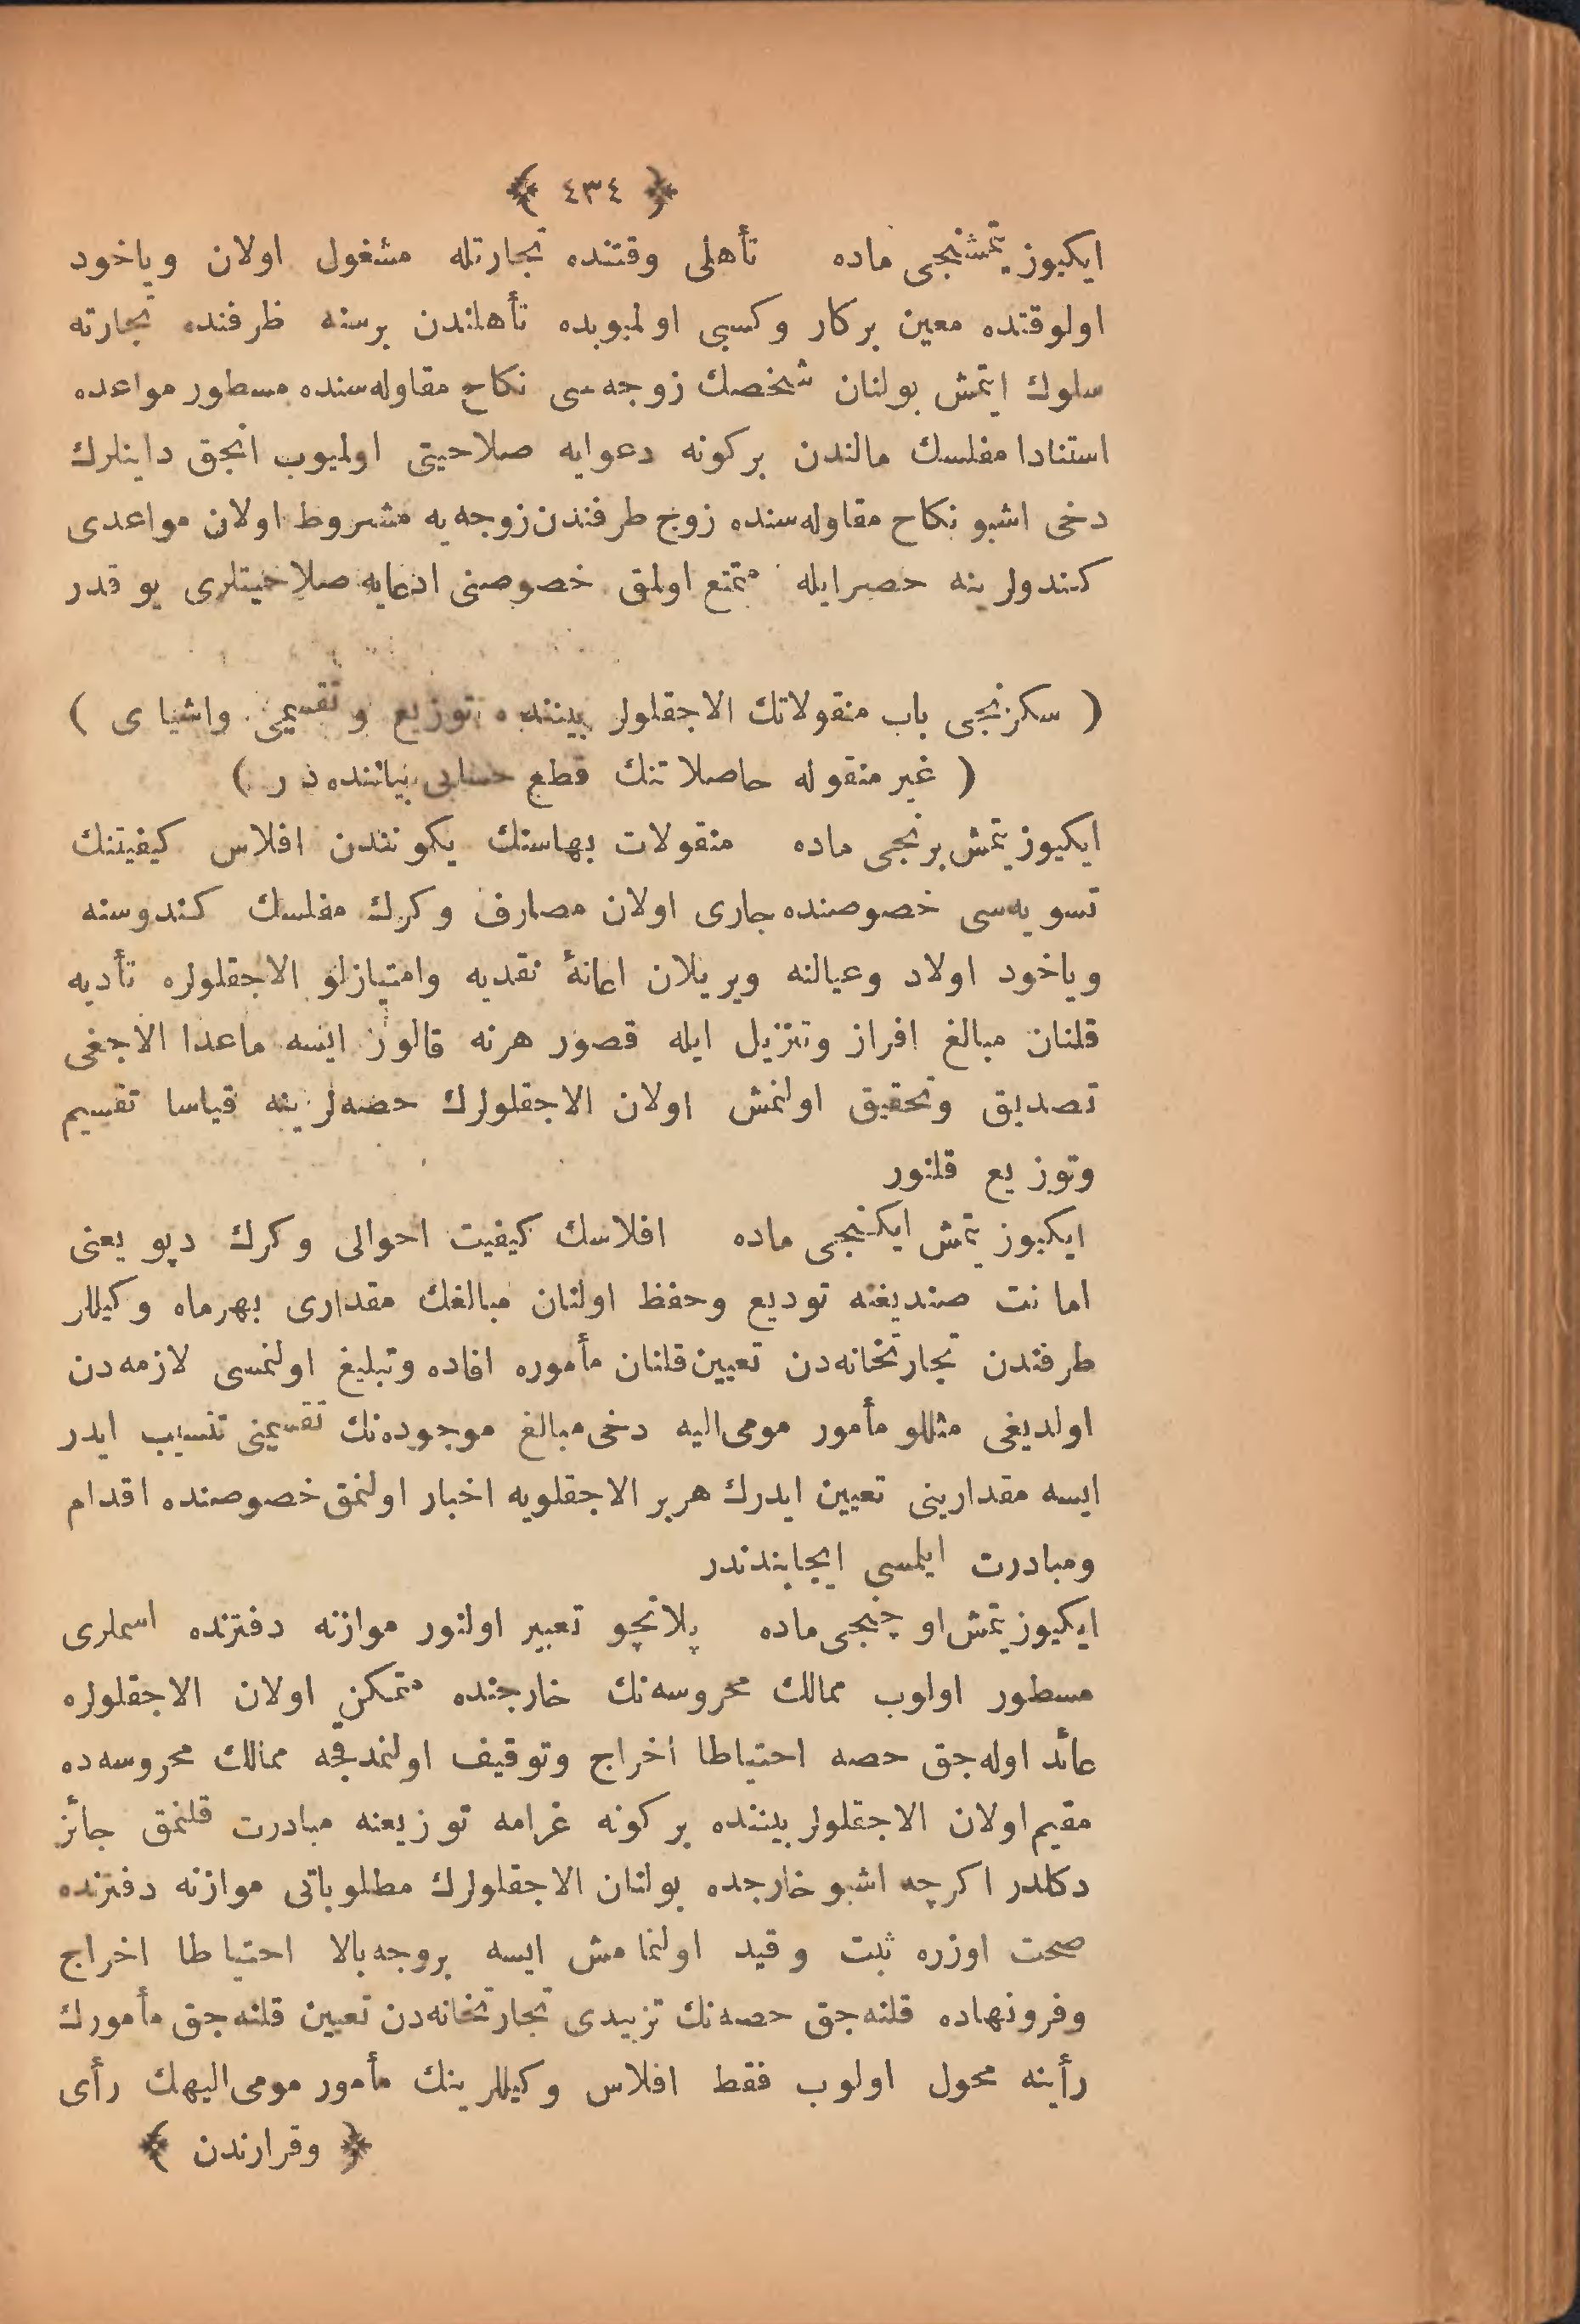 ﴿ ٤٣٤ ﴾
ايكيوز يتمشنجی ماده تأهلی وقتنده تجارتله مشغول اولان وياخود
اولوقتده معين بركار وكسبی اولميوبده تأهلندن برسنه ظرفنده تجارته
سلوك ايتمش بولنان شخصك زوجه‌سی نكاح مقاوله‌سنده مسطور مواعده
استنادا مفلسك مالندن بركونه دعوايه صلاحيتی اولميوب انجق داينلرك
دخی اشبو نكاح مقاوله‌سنده زوج طرفندن زوجه‌يه مشروط اولان مواعدی
كندولرينه حصرايله متمتع اولمق خصوصنی ادعايه صلاحيتلری يوقدر
( سكزنجی باب منقولاتك الاجقلولر بيننده توزيع وتقسيمی واشيای )
( غير منقوله حاصلاتنك قطع حسابی بياننده‌در )
ايكيوز يتمش برنجی ماده منقولات بهاسنك يكونندن افلاس كيفيتنك
تسويه‌سی خصوصنده جاری اولان مصارف وكرك مفلسك كندوسنه
وياخود اولاد وعيالنه ويريلان اعانهٔ نقديه وامتيازلو الاجقلولره تأديه
قلنان مبالغ افراز وتنزيل ايله قصور هرنه قالور ايسه ماعدا الاجغی
تصديق وتحقيق اولنمش اولان الاجقلولرك حصه‌لرينه قياسا تقسيم
وتوزيع قلنور
ايكيوز يتمش ايكنجی ماده افلاسك كيفيت احوالی وكرك دپو يعنی
امانت صنديغنه توديع وحفظ اولنان مبالغك مقداری بهرماه وكيللر
طرفندن تجارتخانه‌دن تعيين قلنان مأموره افاده وتبليغ اولنمسی لازمه‌دن
اولديغی مثللو مأمور مومی‌اليه دخی مبالغ موجوده‌نك تقسيمنی تنسيب ايدر
ايسه مقدارينی تعيين ايدرك هربر الاجقلويه اخبار اولنمق خصوصنده اقدام
ومبادرت ايلمسی ايجابندندر
ايكيوز يتمش اوچنجی ماده پلانچو تعبير اولنور موازنه دفترنده اسملری
مسطور اولوب ممالك محروسه‌نك خارجنده متمكن اولان الاجقلولره
عائد اوله‌جق حصه احتياطا اخراج وتوقيف اولنمدقجه ممالك محروسه‌ده
مقيم اولان الاجقلولر بيننده بركونه غرامه توزيعنه مبادرت قلنمق جائز
دكلدر اكرچه اشبو خارجده بولنان الاجقلولرك مطلوباتی موازنه دفترنده
صحت اوزره ثبت وقيد اولنمامش ايسه بروجه‌بالا احتياطا اخراج
وفرونهاده قلنه‌جق حصه‌نك تزييدی تجارتخانه‌دن تعيين قلنه‌جق مأمورك
رأينه محول اولوب فقط افلاس وكيللرينك مأمور مومی‌اليهك رأی
﴿ وقرارندن ﴾